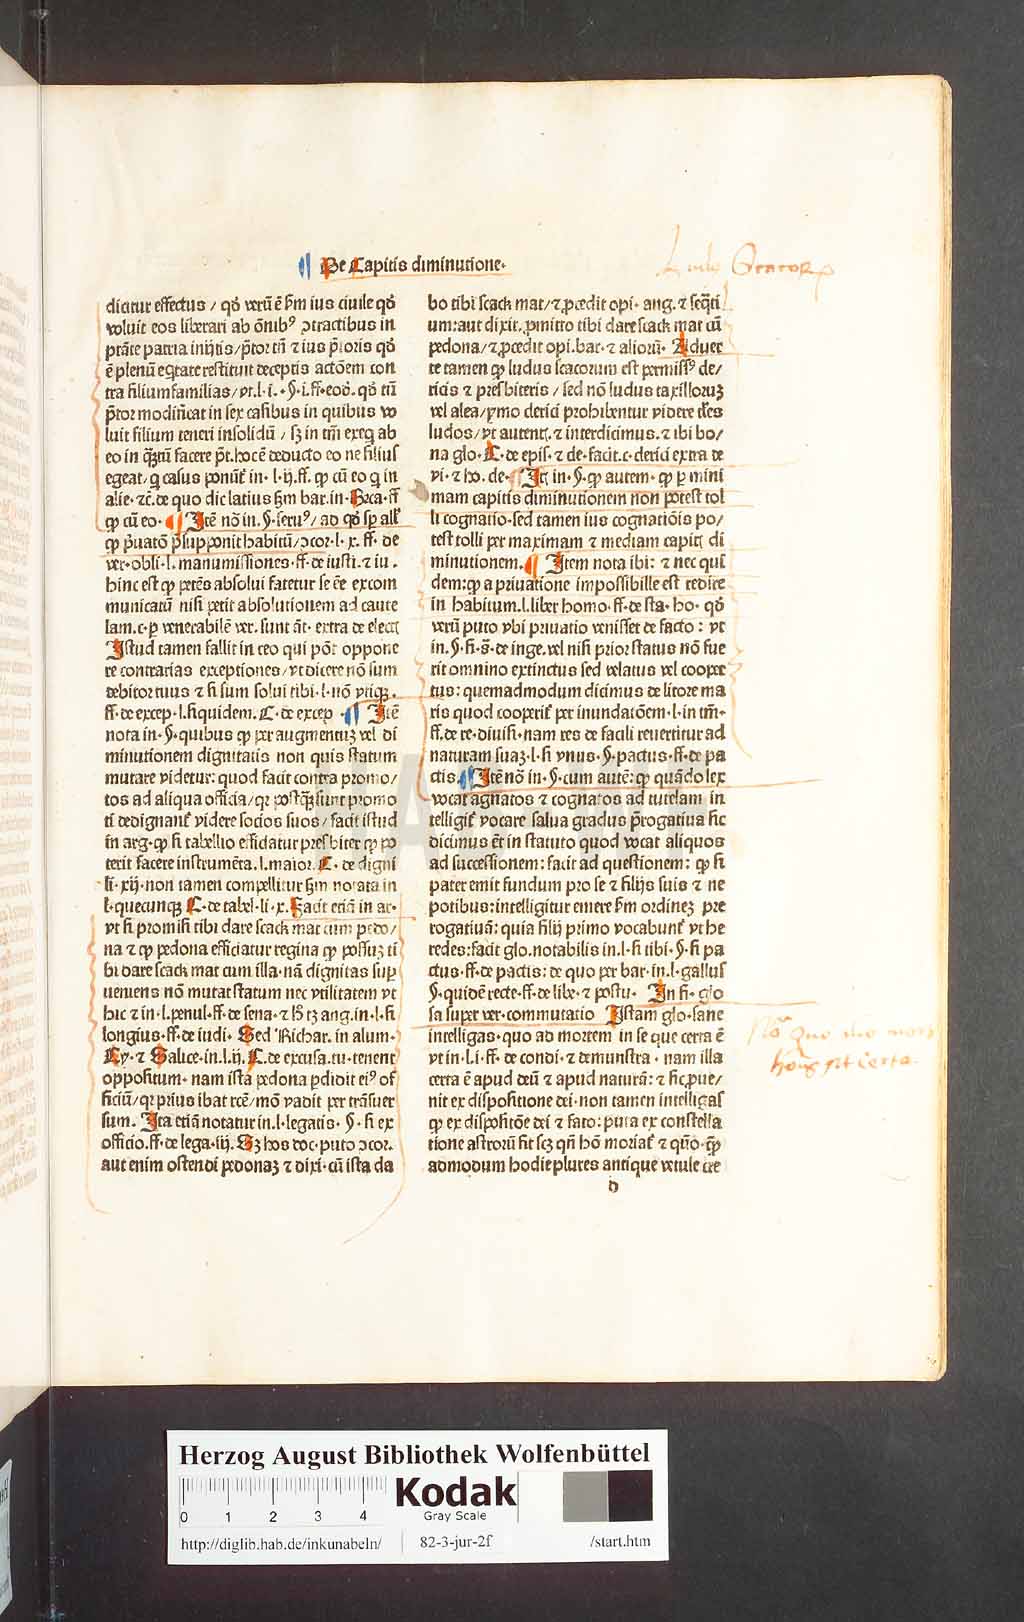 De Capitis diminutione.
Ludus scacorum
dicitur effectus / qđ verũ ẽ ẜm ius ciuile qđ
voluit eos liberari ab õnibꝰ ↄtractibus in
ptãte patria initis / p̃tor tñ ⁊ ius p̃toris qđ
ẽ plenũ eq̃tate restituit deceptis actõem con
tra filiumfamilias / vt. l. i. §. i. ff. eoð. qđ tñ
p̃tor modificat in sex casibus in quibus vo
luit filium teneri insolidũ / sꝫ in tm̃ exeq̃ ab
eo in q̃ꝫtũ facere p̃t. hocẽ deducto eo ne filius
egeat / q̃ casus ponunt̃ in. l. ij. ff. ꝙ cũ eo q̃ in
alie. ⁊c̃. de quo dic latius ẜm bar. in. Brca. ff
ꝙ cũ eo. ¶ Itẽ nõ in. §. seruꝰ / ad qđ sp̃ allr̃
ꝙ p̃uatõ p̃supponit habitũ / ↄcor. l. x. ff. de
ver. obli. l. manumissiones. ff. de iusti. ⁊ iu.
hinc est ꝙ petẽs absolui fatetur se ẽe excom
municatũ nisi petit absolutionem ad caute
lam. c. ꝑ venerabilẽ ver. sunt ãt. extra de elect̃
Istud tamen fallit in reo qui põt oppone
re contrarias exceptiones / vt dicere nõ sum
debitor tuus ⁊ si sum solui tibi. l. nõ vtiqꝫ.
ff. de excep. l. si quidem. C. de excep. ¶ Itẽ
nota in. §. quibus ꝙ per augmentuꝫ vel di
minutionem dignitatis non quis statum
mutare videtur: quod facit contra promo /
tos ad aliqua officia / qr postq̃ꝫ sunt promo
ti dedignant̃ videre socios suos / facit istud
in arg. ꝙ si tabellio efficiatur presbiter ꝙ po
terit facere instrumẽta. l. maior. C. de digni
li. xij. non tamen compellitur ẜm notata in
l. quecunqꝫ C. de tabel. li. x. Facit etiã in ar.
vt si promisi tibi dare scack mat cum pedo /
na ⁊ ꝙ pedona efficiatur regina ꝙ possuꝫ ti
bi dare scack mat cum illa. nã dignitas suꝑ
ueniens nõ mutat statum nec vtilitatem vt
hic ⁊ in. l. penul. ff. de sena. ⁊ hꝫ tꝫ ang. in. l. si
longius. ff. de iudi. Sed Richar. in alum.
Cy. ⁊ Salice. in. l. ij. C. de excusa. tu. tenent
oppositum. nam ista pedona ꝑdidit eiꝰ of
ficiũ / qr prius ibat rcẽ / mõ vadit per trãsuer
sum. Ita etiã notatur in. l. legatis. §. si ex
officio. ff. de lega. iij. Sꝫ hos doc. puto ↄcor.
aut enim ostendi pedonaꝫ ⁊ dixi. cũ ista da
bo tibi scack mat / ⁊ ꝓcedit opi. ang. ⁊ seq̃ti
um: aut dixit. ꝓmitto tibi dare scack mat cũ
pedona / ⁊ ꝓcedit opi. bar. ⁊ aliorũ. Aduer
te tamen ꝙ ludus scacorum est permissꝰ de /
ricis ⁊ presbiteris / sed nõ ludus taxilloruꝫ
vel alea / ymo clerici prohibentur videre tales
ludos / vt autent̃. ⁊ interdicimus. ⁊ ibi bo /
na glo. C. de epis. ⁊ de. facit. c. clerici extra de
vi. ⁊ ho. de. ¶ Itẽ in. §. ꝙ autem. ꝙ ꝑ mini
mam capitis diminutionem non potest tol
li cognatio. sed tamen ius cognatiõis po /
test tolli per maximam ⁊ mediam capitꝭ di
minutionem. ¶ Item nota ibi: ⁊ nec qui
dem: ꝙ a priuatione impossibille est redire
in habitum. l. liber homo. ff. de sta. ho. qđ
verũ puto vbi priuatio venisset de facto: vt
in. §. fi. s̃. de inge. vel nisi prior status nõ fue
rit omnino extinctus sed velatus vel cooper
tus: quemadmodum dicimus de litore ma
ris quod cooperit̃ per inundatõem. l. in tm̃.
ff. de re. diuisi. nam res de facili reuertitur ad
naturam suaꝫ. l. si vnus. §. pactus. ff. de pa
ctis. ¶ Itẽ nõ in. §. cum autẽ: ꝙ quãdo lex
vocat agnatos ⁊ cognatos ad tutelam in
telligit̃ vocare salua gradus p̃rogatiua sic
dicimus ẽt in statuto quod vocat aliquos
ad successionem: facit ad questionem: ꝙ si
pater emit fundum pro se ⁊ filijs suis ⁊ ne
potibus: intelligitur emere ẜm ordineꝫ pre
rogatiuã: quia filij primo vocabunt̃ vt he
redes: facit glo. notabilis in. l. si tibi. §. si pa
ctus. ff. de pactis: de quo per bar. in. l. gallus
§. quidẽ recte. ff. de libe. ⁊ postu. In fi. glo
sa super ver. commutatio Istam glo. sane
intelligas. quo ad mortem in se que certa ẽ
vt in. l. i. ff. de condi. ⁊ demunstra. nam illa
certa ẽ apud deũ ⁊ apud naturã: ⁊ sic ꝓue /
nit ex dispositione dei. non tamen intelligas
ꝙ ex dispositõe dei ⁊ fato: puta ex constella
tione astrorũ sit scꝫ qñ hõ moriat̃ ⁊ quõ. q̃ꝫ
admodum hodie plures antique vetule cre
b
Herzog August Bibliothek Wolfenbüttel
0 1 2 3 4
Kodak
Gray Scale
http://diglib.hab.de/inkunabeln/ 82-3-jur-2f /start.htm